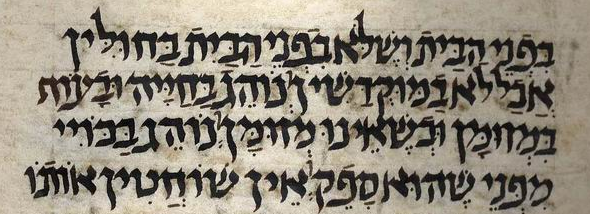 בפני הבית ושלא בפני הבית בחולין
אבל לא במוקדשין נוהג בחייה ובעוף
במזומן ובשאינו מזומן נוהג בכויי
מפני שהוא ספק אין שוחטין אותו